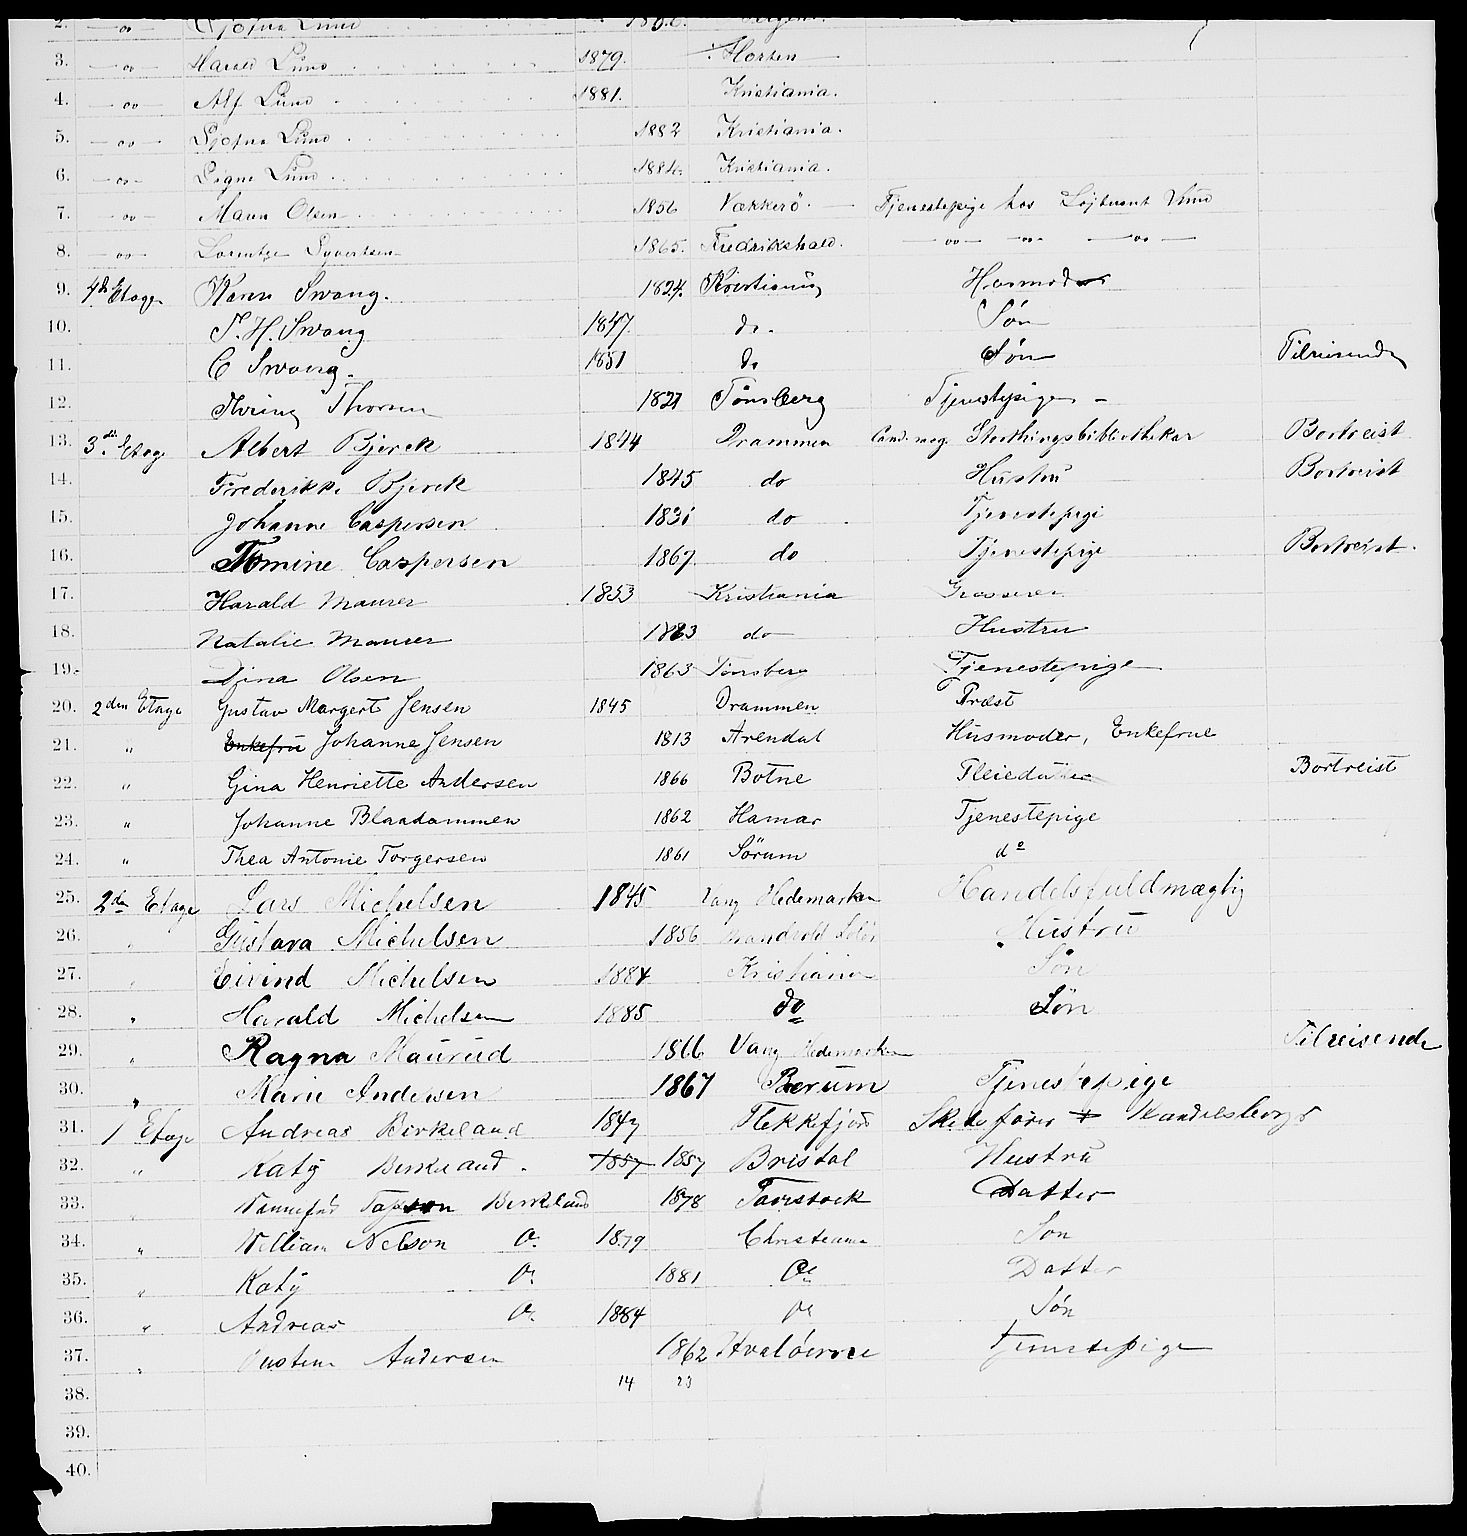 2. —〃— Lund
3. —〃— Harald Lund 1879. Horten
4. —〃— Alf Lund 1881. Kristiania.
5. —〃— Lund 1882 Kristiania.
6. —〃— Signe Lund 1884. Kristiania.
7. —〃— Olsen 1856 Vækkerö. Tjenestepige hos Löjtnant Lund
8. —〃— Lorentze Syvertsen 1865. Fredrikshald. —〃— —〃— —〃—
9. 4de Etage Karen Swang. 1824.
10. T. H. Swang 1847. do. Søn
11. C Swang. 1851 do Søn Tilreisende
12. Thorsen 1827 Tönsberg Tjenestepige
13. 3die Etage Albert Bjerck 1844 Drammen Cand. mag. Storthingsbibliothekar Bortreist
14. Frederikke Bjerck 1845 do Hustru Bortreist
15. Johanne Caspersen 1831 do Tjenestepige
16. Tomine Caspersen 1867. do Tjenestepige Bortreist.
17. Harald Maurer 1853 Kristiania Grosserer
18. Natalie Maurer do Hustru
19. Olsen 1863 Tønsberg Tjenestepige
20. 2den Etage Gustav Margert Jensen 1845 Drammen Præst
21. 〃 Enkefru Johanne Jensen 1813 Arendal Husmoder, Enkefrue
22. 〃 Gina Henriette Andersen 1866 Botne Pleiedatter Bortreist
23. 〃 Johanne Blaadammen 1862 Hamar Tjenestepige
24. 〃 Thea Antonie Torgersen 1861 Sörum do
25. 2den Etage Lars Michelsen 1845 Vang Hedemarken Handelsfuldmægtig
26. 〃 Gustava Michelsen 1856 Hustru
27. 〃 Eivind Michelsen 1884 Kristiania Søn
28. 〃 Harald Michelsen 1885 do Søn
29. 〃 Ragna Maurud 1866 Vang Hedemarken Tilreisende
30. 〃 Marie Andersen 1867 Bærum Tjenestepige
31. 1 Etage Andreas Birkeland 1847 Flekkefjord
32. 〃 Katy Birkeland. 1857 1857 Bristol Hustru
33. 〃 Birkeland 1878 Tavistock Datter
34. 〃 William Nelson Do. 1879 Christiania Søn
35. 〃 Katy Do. 1881 Do Datter
36. 〃 Andreas Do. 1884 Do Søn
37. 〃 Andersen 1862 Hvalöerne Tjenestepige
38. 14 23
39.
40.